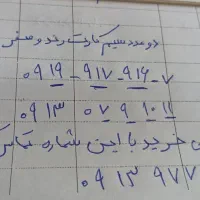 دو عدد سیم کارت رند و صفر
۰۹۱۹ - ۹۱۷ - ۹۱۶ - ۷
۰۹۱۳ ۰۷ ۹ ۱۰ ۱۱
خرید با این شماره تماس
۰۹۱۳ ۹۷۷